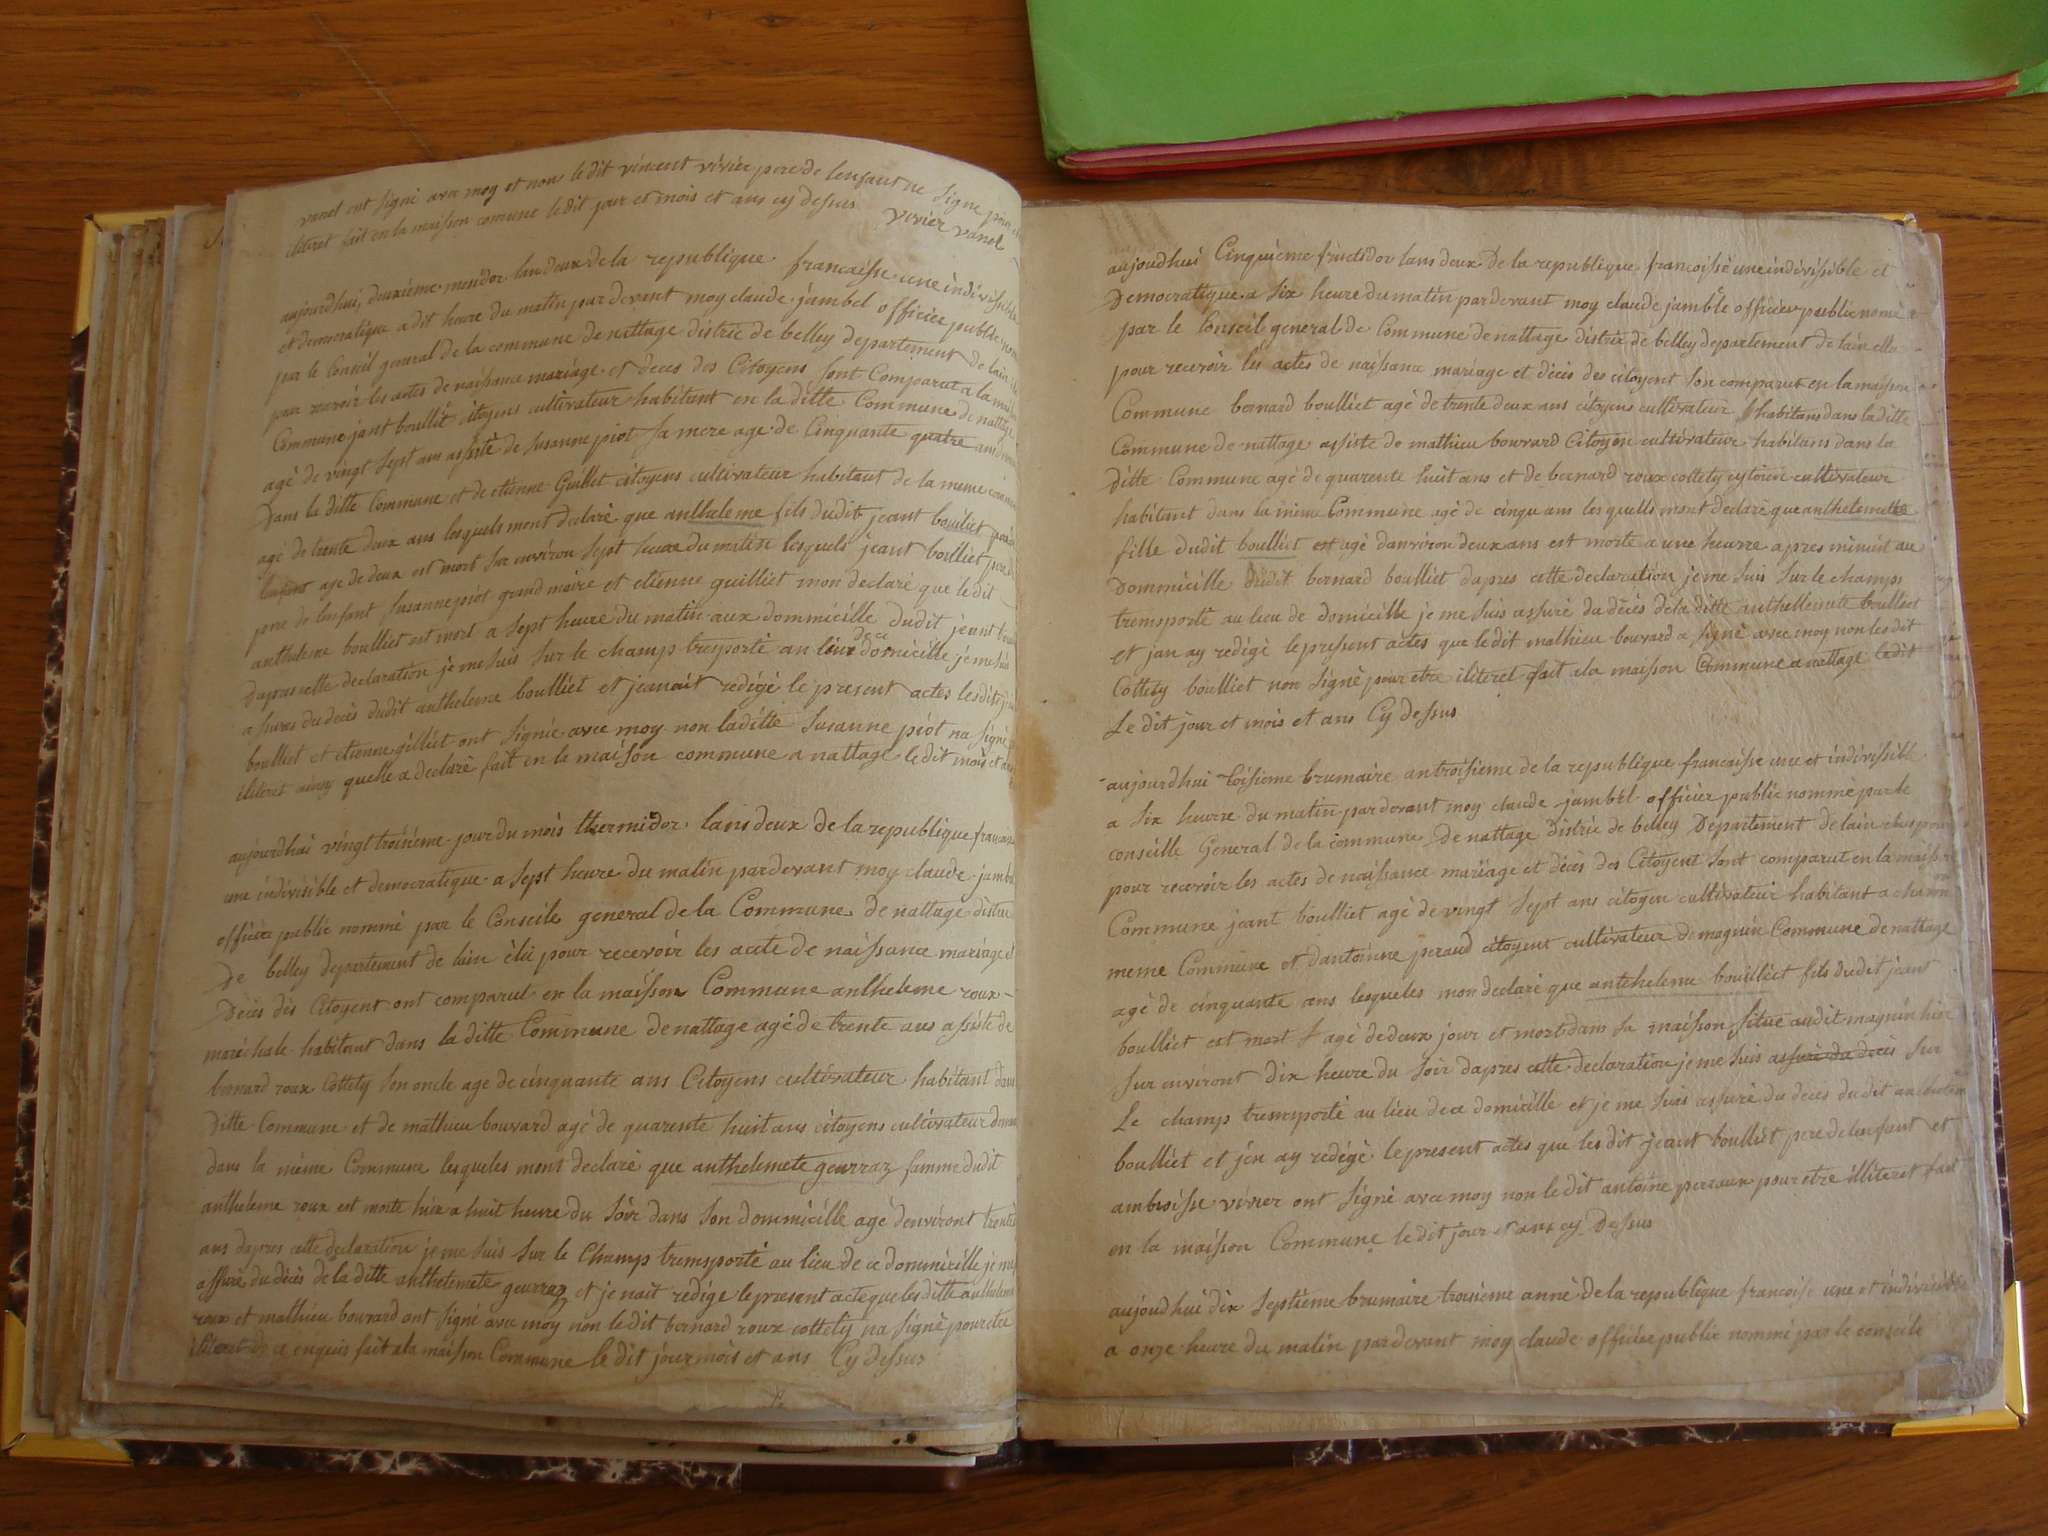 vanet ont signé avec moy et non le dit vincent vivier pere de lenfant ne signe pour
iliteret fait en la maison comune le dit jour et mois et ans cy dessus
vivier vanet
aujourdhui, deuxieme messidor lan deux de la republique francaisse une indivissible
et democratique a dit heure du matin par devant moy claude jambel officier public
par le Conseil general de la commune de nattage distric de belley departement de lain
pour recevoir les actes de naissance mariage et deces des Citoyens sont Comparut a la maison
Commune jant boulliet citoyens cultivateur habitant en la ditte Commune de nattage
agé de vingt sept ans assisté de susanne piot sa mere age de Cinquante quatre ans
dans la ditte Commune et de etienne Guillet citoyens cultivateur habitant de la meme
agé de trente deux ans lesquels mont declaré que antheleme fils dudit jeant boulliet
age de deux est mort sur environ sept heure du matin lesquels jeant boulliet
pere de lenfant susanne piot grand maire et etienne guilliet mon declaré que le dit
antheleme boulliet est mort a sept heure du matin aux dommicille dudit jeant
dapres cette declaration je me suis sur le champ tresporté au lieux de ce domicille je me suis
assuré du decès dudit antheleme boulliet et jeanait redigé le present actes les dits
boulliet et etienne gilliet ont signié avec moy non la ditte susanne piot na signé
iliteret ainsy quelle a declaré fait en la maison commune a nattage le dit mois et ans
aujourdhui vingt troisieme jour du mois thermidor lans deux de la republique francaisse
une indivisible et democratique a sept heure du matin pardevant moy claude jambel
officier public nommé par le Conseile general de la Commune de nattage distric
De belley departement de lain élu pour recevoir les acte de naissance mariage et
Décès dès Citoyent ont comparut en la maisson Commune antheleme roux
maréchale habitant dans la ditte Commune de nattage agé de trente ans assisté de
bernard roux Cottety son oncle age de cinquante ans Citoyens cultivateur habitant dans
ditte Commune et de mathieu bouvard agé de quarente huit ans citoyens cultivateur
dans la même Commune lesqueles mont declaré que anthelemete gourraz famme dudit
antheleme roux est morte hier a huit heure du soir dans son dommicille agé denviront trente
ans dapres cette declaration je me suis sur le Champ tremsporté au lieu de ce dommicille je me
assuré du décès de la ditte anthelemete gourraz et je nait rédige le present acte que les ditte antheleme
roux et mathieu bouvard ont signé avec moy non le dit bernard roux cottety na signé pour etre
iliteret de ce enquis fait a la maisson Commune le dit jour mois et ans Cy dessus
aujoudhui Cinquième fructidor lans deux De la republique francoisse une indivissible et
Democratique a six heure du matin pardevant moy claude jambel officier public nomé
par le Conseil general de Commune de nattage distric de belley departement de lain
pour recevoir les actes de naissance mariage et décès des citoyent son comparut en la maisson
Commune bernard boulliet agé de trente deux ans citoyens cultivateur habitans dans la ditte
Commune de nattage assisté de mathieu bouvard Citoyen cultivateur habitans dans la
ditte Commune agé de quarente huit ans et de bernard roux cottety cytoien cultivateur
habitant dans la mème Commune agé de cinqu ans les quells mont declaré que anthelemette
fille dudit boulliet est agé danviron deux ans est morte a une heurre apres minuit au
Dommicille dudit bernard boulliet dapres cette declaration je me suis sur le champs
tremsporté au lieu de domicille je me suis assuré du décès de la ditte anthellemette boulliet
et jan ay redigé le present actes que le dit mathieu bouvard a signé avec moy non les dit
Cottety boulliet non signé pour etre iliteret fait a la maisson Commune a nattage
Le dit jour et mois et ans Cy dessus
aujourdhui toisieme brumaire an troisieme de la republique francaisse une et indivissible
a six heurre du matin par devant moy claude jambél officier public nommé par le
conseille General de la commune De nattage distric de belley Departement de lain
pour recevoir les actes de naissance mariage et décès des Citoyent sont comparut en la maisson
Commune jeant boulliet agé de vingt sept ans citoyen cultivateur habitant a
meme Commune et dantoinne peraud citoyent cultivateur de magnin Commune de nattage
agé de cinquante ans lesqueles mon declaré que antheleme boulliet fils dudit jeant
boulliet est mort agé de deux jour et mort dans sa maisson situé audit magnin hier
sur environt dix heure du soir dapres cette declaration je me suis assuré du decès sur
Le champ tremsporté au lieu de ce domicille et je me suis assuré du deces du dit
boulliet et jén ay redigé le present actes que les dit jeant boulliet pere de lenfant et
ambroisse vivier ont signé avec moy non le dit antoine peraux pour etre illiteret fait
en la maisson Commune le dit jour et ans cy Dessus
aujoudhui dix septieme brumaire troisieme anné de la republique francoise une et indivisible
a onze heure du matin pardevant moy claude officier public nommé par le conseile